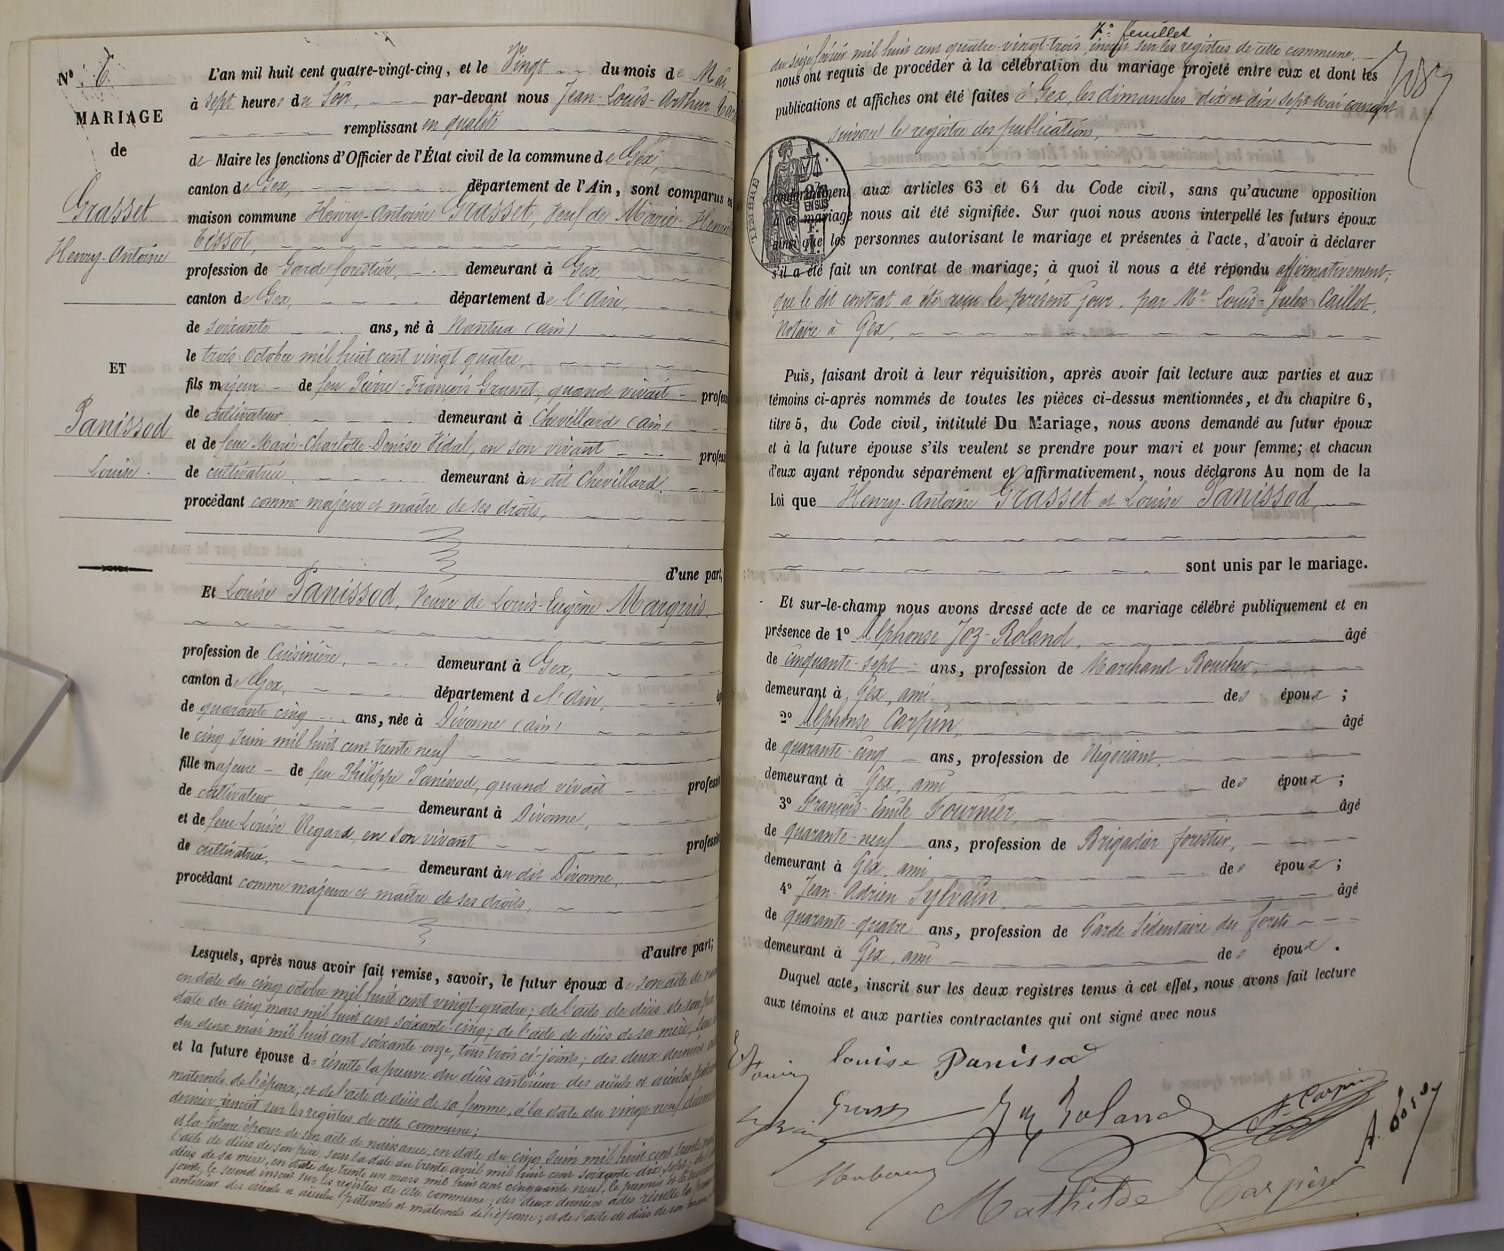 N° 6
MARIAGE
de
Grasset
Henry-Antoine
ET
Panissod
Louise
L'an mil huit cent quatre-vingt-cinq, et le Vingt du mois de Mai
à sept heures du Soir, par-devant nous Jean-Louis-Arthur
remplissant en qualité
de Maire les fonctions d'Officier de l'État civil de la commune de Gex,
canton de Gex, département de l'Ain, sont comparus en
maison commune Henry-Antoine Grasset, Veuf de Marie-
Tissot,
profession de Garde forestier, demeurant à Gex
canton de Gex, département de l'Ain,
de soixante ans, né à Nantua (ain)
le trois Octobre mil huit cent vingt quatre,
fils majeur de feu Pierre-François Grasset, quand vivait profes
de cultivateur demeurant à Chevillard (ain)
et de feue Marie-Charlotte Denise Vidal, en son vivant profes
de cultivatrice, demeurant au dit Chevillard,
procédant comme majeur et maître de ses droits,
d'une part,
Et Louise Panissod, Veuve de Louis-Eugène Marquis,
profession de Cuisinière, demeurant à Gex,
canton de Gex, département de l'Ain,
de quarante cinq ans, née à Divonne (ain)
le cinq Juin mil huit cent trente neuf
fille majeure de feu Philippe Panissod, quand vivait profess
de cultivateur demeurant à Divonne,
et de feue Louise Regard, en son vivant profession
de cultivatrice, demeurant au dit Divonne,
procédant comme majeure et maître de ses droits,
d'autre part;
Lesquels, après nous avoir fait remise, savoir, le futur époux de son acte de
en date du cinq octobre mil huit cent vingt-quatre; de l'acte de décès de son père
date du cinq mars mil huit cent soixante-cinq; de l'acte de décès de sa mère, sous
du deux mar mil huit cent soixante-onze, tous trois ci-joints; des deux derniers
et la future épouse de résulte la preuve du décès antérieur des aïeuls et aïeules
maternels de l'époux, et de l'acte de décès de sa femme, à la date du vingt-neuf
dernier, inscrit sur les registres de cette commune;
et la future épouse de son acte de naissance, en date du cinq Juin mil huit cent trente neuf
l'acte de décès de son père, sous la date du trente avril mil huit cent soixante dix sept;
décès de sa mère, en date du trente un mars mil huit cent cinquante neuf, le premier
joint, le second inscrit sur les registres de cette commune; des deux derniers actes résulte la
antérieur des aïeuls et aïeules paternels et maternels de l'épouse; et de l'acte de décès de son
7e feuillet
du seize février mil huit cent quatre-vingt-trois, inscrit sur les registres de cette commune.
nous ont requis de procéder à la célébration du mariage projeté entre eux et dont les
publications et affiches ont été faites à Gex, les dimanches dix et dix sept Mai courant
suivant le registre des publications,
conformément aux articles 63 et 64 du Code civil, sans qu'aucune opposition
à ce mariage nous ait été signifiée. Sur quoi nous avons interpellé les futurs époux
ainsi que les personnes autorisant le mariage et présentes à l'acte, d'avoir à déclarer
s'il a été fait un contrat de mariage; à quoi il nous a été répondu affirmativement;
que le dit contrat a été reçu le présent jour, par Me Louis-Jules Caillot,
Notaire à Gex,
Puis, faisant droit à leur réquisition, après avoir fait lecture aux parties et aux
témoins ci-après nommés de toutes les pièces ci-dessus mentionnées, et du chapitre 6,
titre 5, du Code civil, intitulé Du Mariage, nous avons demandé au futur époux
et à la future épouse s'ils veulent se prendre pour mari et pour femme; et chacun
d'eux ayant répondu séparément et affirmativement, nous déclarons Au nom de la
Loi que Henry-Antoine Grasset et Louise Panissod,
sont unis par le mariage.
Et sur-le-champ nous avons dressé acte de ce mariage célébré publiquement et en
présence de 1° Alphonse Joz-Roland, âgé
de cinquante-sept ans, profession de Marchand Boucher,
demeurant à Gex, ami des époux;
2° Alphonse Carpin, âgé
de quarante-cinq ans, profession de Négociant,
demeurant à Gex, ami des époux;
3° François-Emile Fournier, âgé
de quarante-neuf ans, profession de Brigadier forestier,
demeurant à Gex, ami des époux;
4° Jean-Adrien Sylvain, âgé
de quarante-quatre ans, profession de Garde Sédentaire des forêts
demeurant à Gex, ami des époux.
Duquel acte, inscrit sur les deux registres tenus à cet effet, nous avons fait lecture
aux témoins et aux parties contractantes qui ont signé avec nous
Louise Panissod
Joz Roland
A. Carpin
Mathilde Carpin